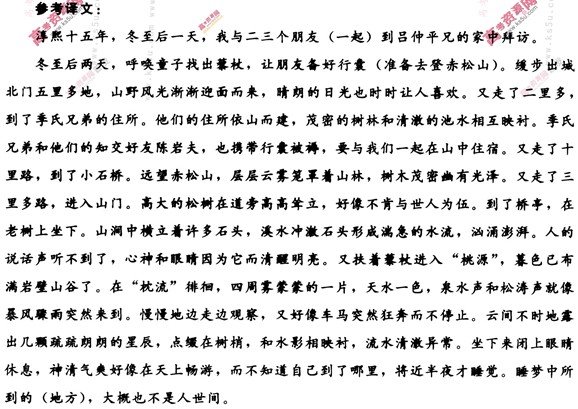 参考译文：
淳熙十五年，冬至后一天，我与二三个朋友（一起）到吕仲平兄的家中拜访。
冬至后两天，呼唤童子找出藜杖，让朋友备好行囊（准备去登赤松山）。缓步出城
北门五里多地，山野风光渐渐迎面而来，晴朗的日光也时时让人喜欢。又走了二里多，
到了季氏兄弟的住所。他们的住所依山而建，茂密的树林和清澈的池水相互映衬。季氏
兄弟和他们的知交好友陈岩夫，也携带行囊被褥，要与我们一起在山中住宿。又走了十
里路，到了小石桥。远望赤松山，层层云雾笼罩着山林，树木茂密幽有光泽。又走了三
里多路，进入山门。高大的松树在道旁高高耸立，好像不肯与世人为伍。到了桥亭，在
老树上坐下。山涧中横立着许多石头，溪水冲激石头形成湍急的水流，汹涌澎湃。人的
说话声听不到了，心神和眼睛因为它而清醒明亮。又扶着藜杖进入“桃源”，暮色已布
满岩壁山谷了。在“枕流”徘徊，四周雾蒙蒙的一片，天水一色，泉水声和松涛声就像
暴风骤雨突然来到。慢慢地边走边观察，又好像车马突然狂奔而不停止。云间不时地露
出几颗疏疏朗朗的星辰，点缀在树梢，和水影相映衬，流水清澈异常。坐下来闭上眼睛
休息，神清气爽好像在天上畅游，而不知道自己到了哪里，将近半夜才睡觉。睡梦中所
到的（地方），大概也不是人世间。
高考资源网
www.ks5u.com